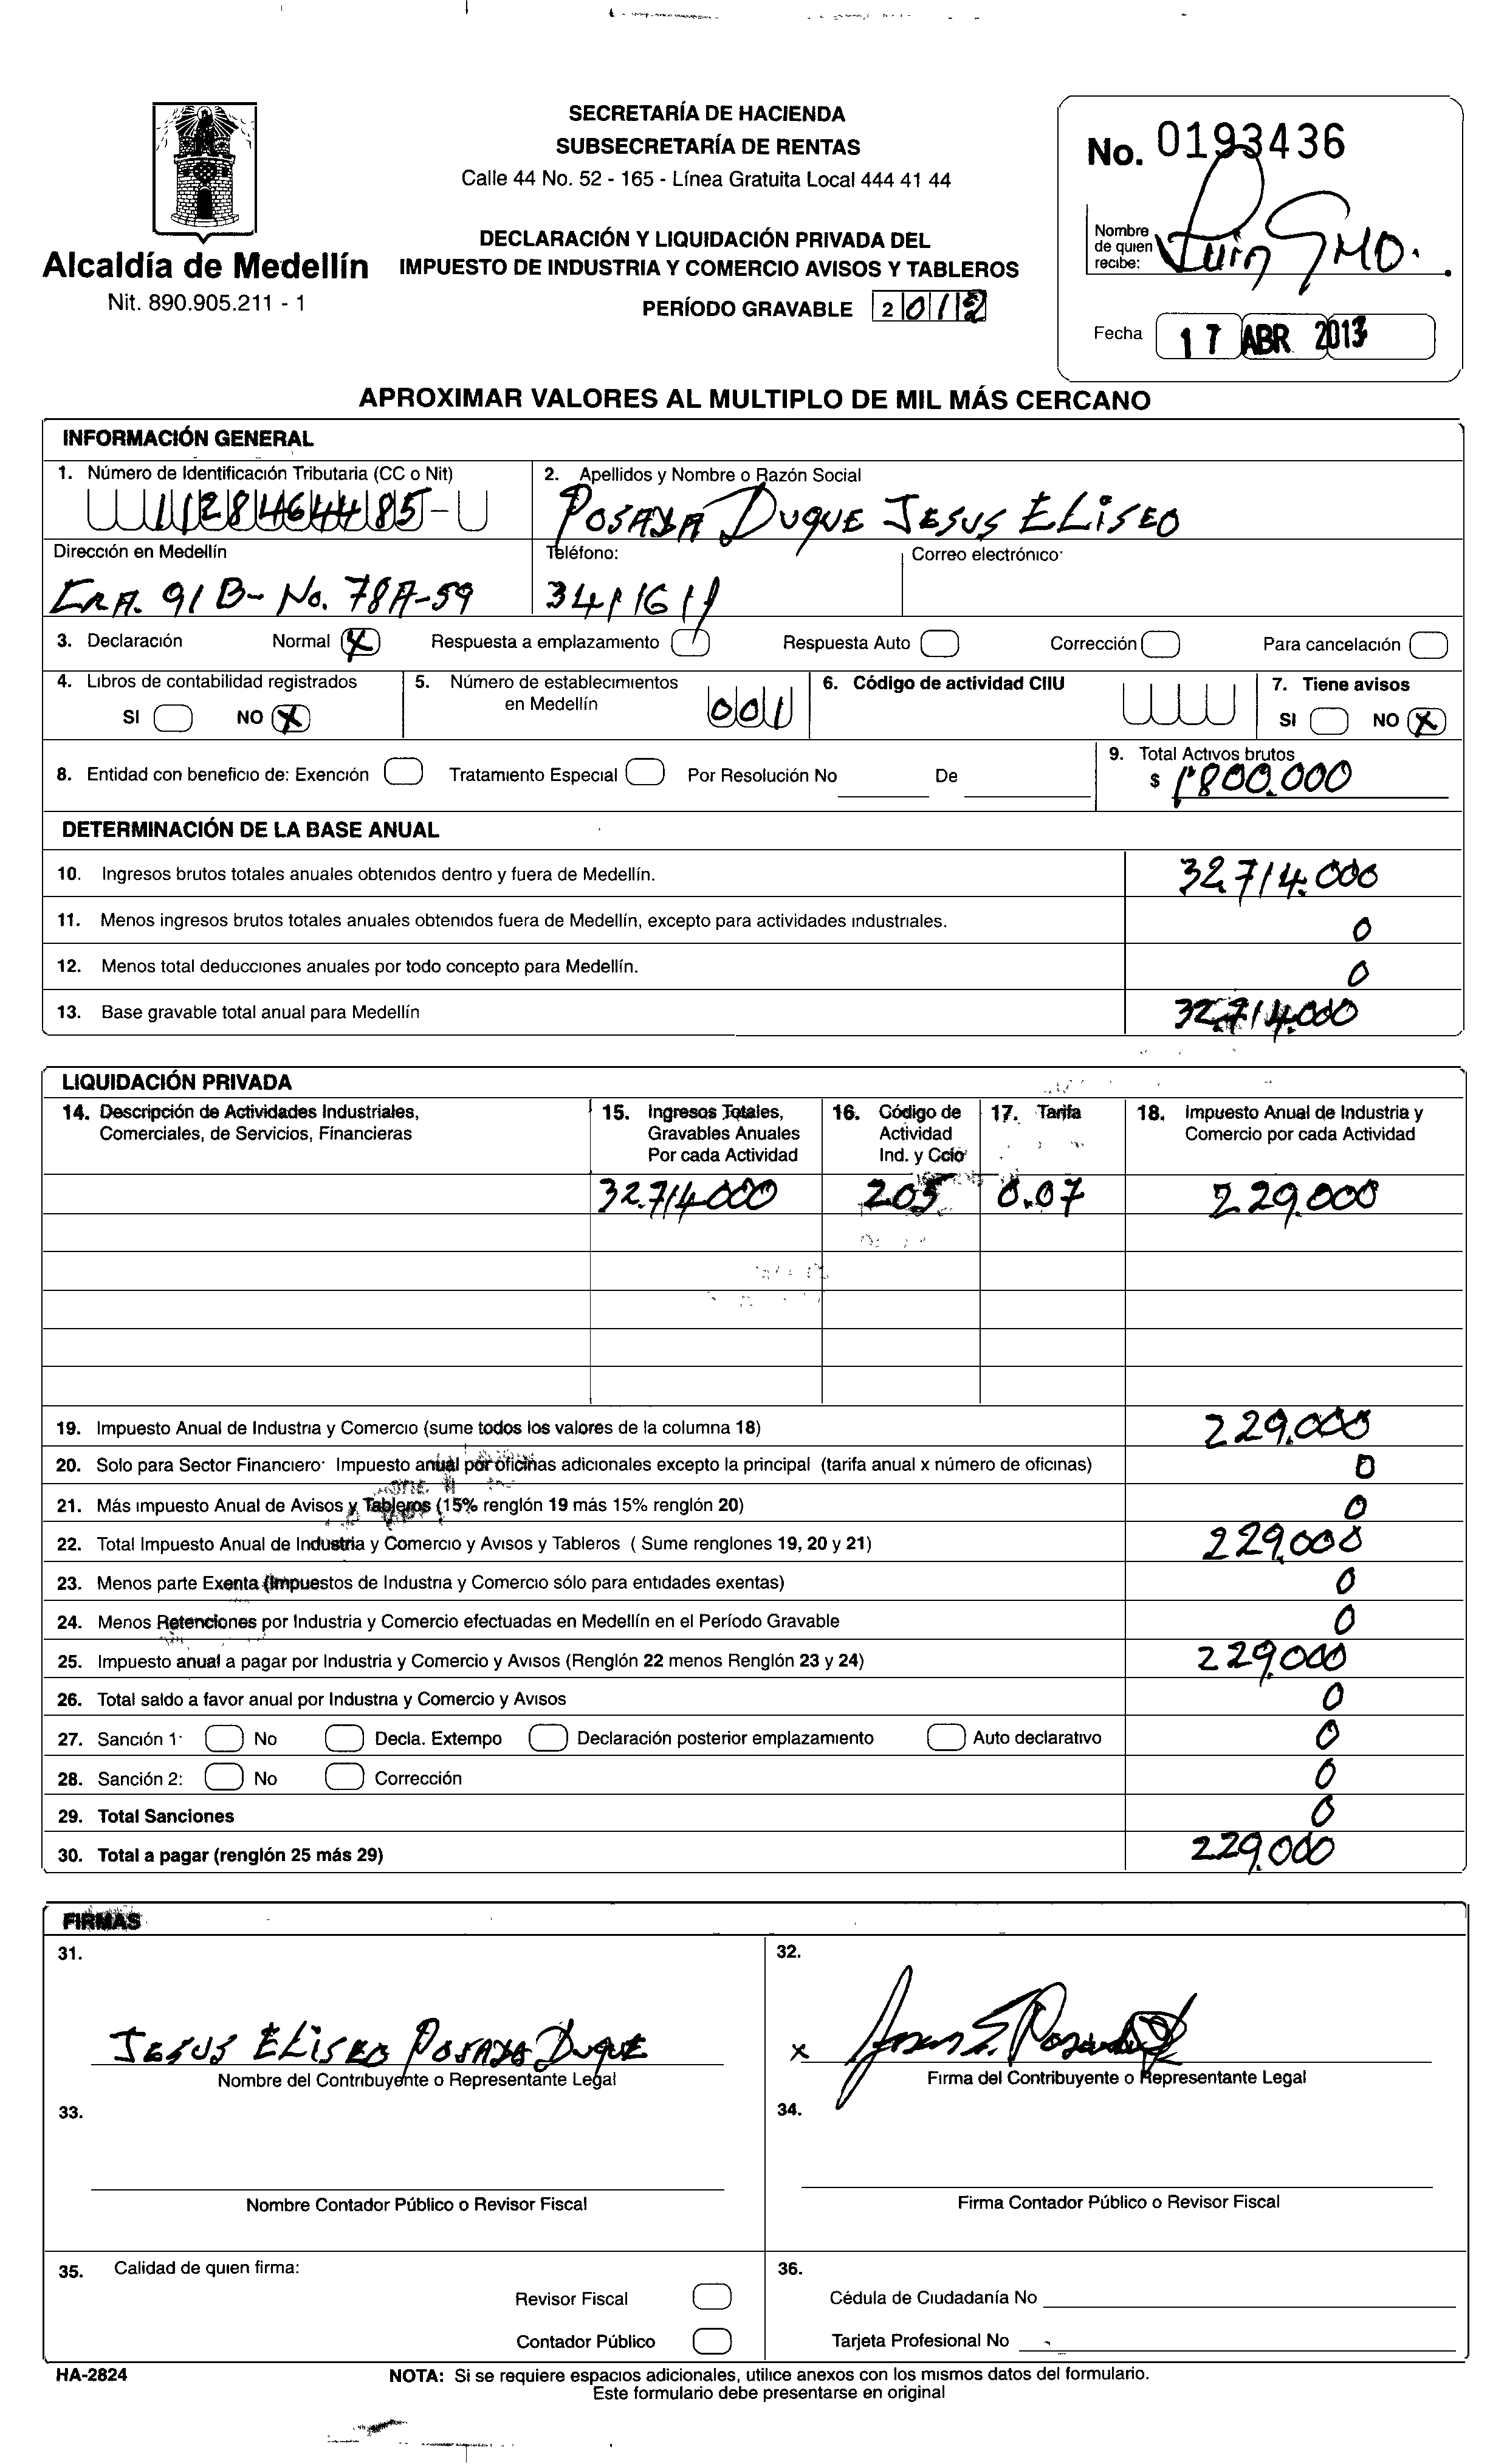 SECRETARÍA DE HACIENDA
SUBSECRETARÍA DE RENTAS
Calle 44 No. 52 - 165 - Línea Gratuita Local 444 41 44
Alcaldía de Medellín
Nit. 890.905.211 - 1
DECLARACIÓN Y LIQUIDACIÓN PRIVADA DEL
IMPUESTO DE INDUSTRIA Y COMERCIO AVISOS Y TABLEROS
PERÍODO GRAVABLE 2012
No. 0193436
Nombre de quien recibe:
Fecha 17 ABR 2013
APROXIMAR VALORES AL MULTIPLO DE MIL MÁS CERCANO
INFORMACIÓN GENERAL
1. Número de Identificación Tributaria (CC o Nit) 2. Apellidos y Nombre o Razón Social
1128464485- POSADA DUQUE JESUS ELISEO
Dirección en Medellín Teléfono: Correo electrónico:
CRA. 91B- No. 78A-59 3411611
3. Declaración Normal X Respuesta a emplazamiento Respuesta Auto Corrección Para cancelación
4. Libros de contabilidad registrados SI NO X 5. Número de establecimientos en Medellín 001 6. Código de actividad CIIU 7. Tiene avisos SI NO X
8. Entidad con beneficio de: Exención Tratamiento Especial Por Resolución No De 9. Total Activos brutos $ 1'800.000
DETERMINACIÓN DE LA BASE ANUAL
10. Ingresos brutos totales anuales obtenidos dentro y fuera de Medellín. 32.714.000
11. Menos ingresos brutos totales anuales obtenidos fuera de Medellín, excepto para actividades industriales. 0
12. Menos total deducciones anuales por todo concepto para Medellín. 0
13. Base gravable total anual para Medellín 32.714.000
LIQUIDACIÓN PRIVADA
14. Descripción de Actividades Industriales, Comerciales, de Servicios, Financieras 15. Ingresos Totales, Gravables Anuales Por cada Actividad 16. Código de Actividad Ind. y Ccio 17. Tarifa 18. Impuesto Anual de Industria y Comercio por cada Actividad
32.714.000 205 0.07 229.000
19. Impuesto Anual de Industria y Comercio (sume todos los valores de la columna 18) 229.000
20. Solo para Sector Financiero: Impuesto anual por oficinas adicionales excepto la principal (tarifa anual x número de oficinas) 0
21. Más impuesto Anual de Avisos y Tableros (15% renglón 19 más 15% renglón 20) 0
22. Total Impuesto Anual de Industria y Comercio y Avisos y Tableros ( Sume renglones 19, 20 y 21) 229.000
23. Menos parte Exenta (Impuestos de Industria y Comercio sólo para entidades exentas) 0
24. Menos Retenciones por Industria y Comercio efectuadas en Medellín en el Período Gravable 0
25. Impuesto anual a pagar por Industria y Comercio y Avisos (Renglón 22 menos Renglón 23 y 24) 229.000
26. Total saldo a favor anual por Industria y Comercio y Avisos 0
27. Sanción 1: No Decla. Extempo Declaración posterior emplazamiento Auto declarativo 0
28. Sanción 2: No Corrección 0
29. Total Sanciones 0
30. Total a pagar (renglón 25 más 29) 229.000
FIRMAS
31. 32.
JESUS ELISEO POSADA DUQUE x
Nombre del Contribuyente o Representante Legal Firma del Contribuyente o Representante Legal
33. 34.
Nombre Contador Público o Revisor Fiscal Firma Contador Público o Revisor Fiscal
35. Calidad de quien firma: 36.
Revisor Fiscal Cédula de Ciudadanía No
Contador Público Tarjeta Profesional No
HA-2824 NOTA: Si se requiere espacios adicionales, utilice anexos con los mismos datos del formulario.
Este formulario debe presentarse en original